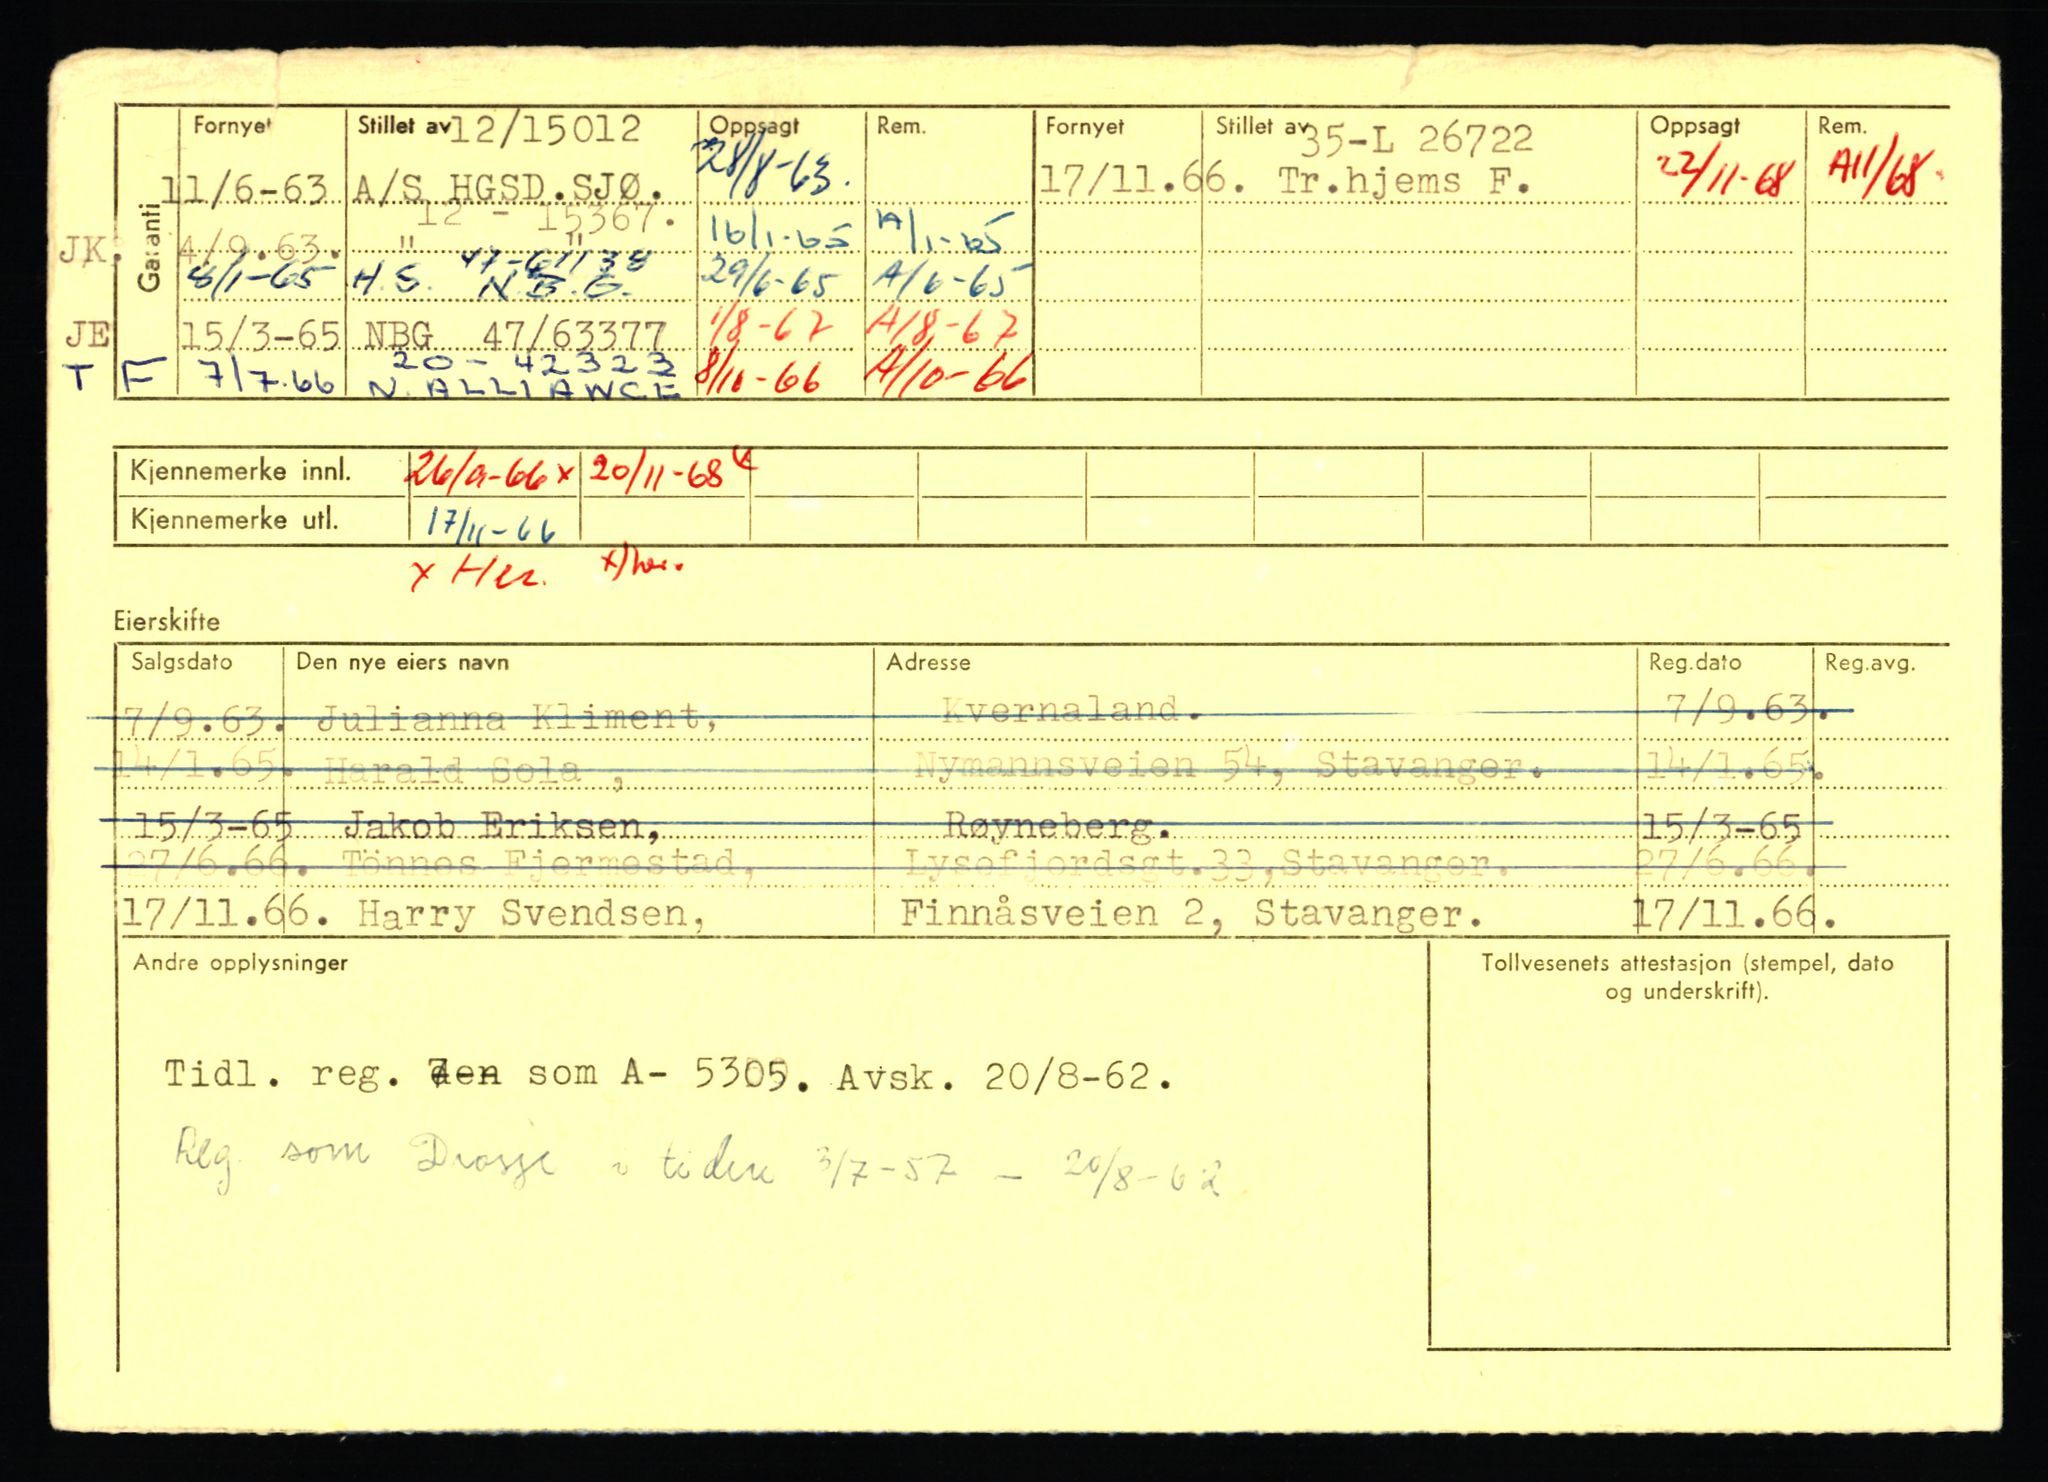 Fornyet Stillet av 12/15012 Oppsagt Rem. Fornyet Stillet av 35-L 26722 Oppsagt Rem.
Garanti
11/6-63 A/S HGSD.SJØ. 28/8-63. 17/11.66. Tr.hjems F. 22/11-68 A11/68.
12 - 15367.
JK. 4/9.63. " " 16/1-65 A/1-65
47-61138
8/1-65 H.S. N.B.G. 29/6-65 A/6-65
JE 15/3-65 NBG 47/63377 1/8-67 A/8-67
20-42323
T F 7/7.66 N.ALLIANCE 8/10-66 A/10-66
Kjennemerke innl. 26/9-66 x 20/11-68 x
Kjennemerke utl. 17/11-66
x Her. x) her.
Eierskifte
Salgsdato Den nye eiers navn Adresse Reg.dato Reg.avg.
7/9.63. Julianna Kliment, Kvernaland. 7/9.63.
14/1.65. Harald Sola , Nymannsveien 54, Stavanger. 14/1.65.
15/3-65 Jakob Eriksen, Røyneberg. 15/3-65
27/6.66. Tönnes Fjermestad, Lysefjordsgt.33,Stavanger. 27/6.66.
17/11.66. Harry Svendsen, Finnåsveien 2, Stavanger. 17/11.66.
Andre opplysninger
Tollvesenets attestasjon (stempel, dato
og underskrift).
Tidl. reg. som A- 5305. Avsk. 20/8-62.
Reg. som Drosje i tiden 3/7-57 - 20/8-62